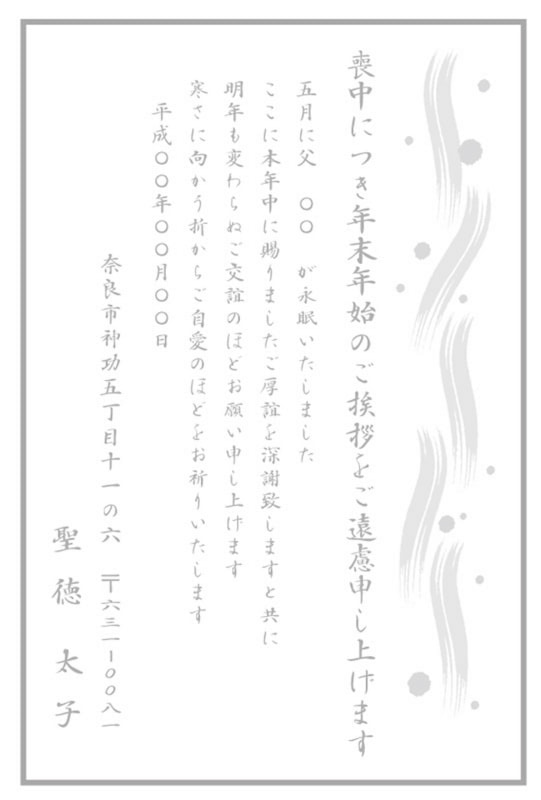 喪中につき年末年始のご挨拶をご遠慮申し上げます
五月に父 〇〇 が永眠いたしました
ここに本年中に賜りましたご厚誼を深謝致しますと共に
明年も変わらぬご交誼のほどお願い申し上げます
寒さに向かう折からご自愛のほどをお祈りいたします
平成〇〇年〇〇月〇〇日
奈良市神功五丁目十一の六 〒六三一-〇〇八一
聖徳太子